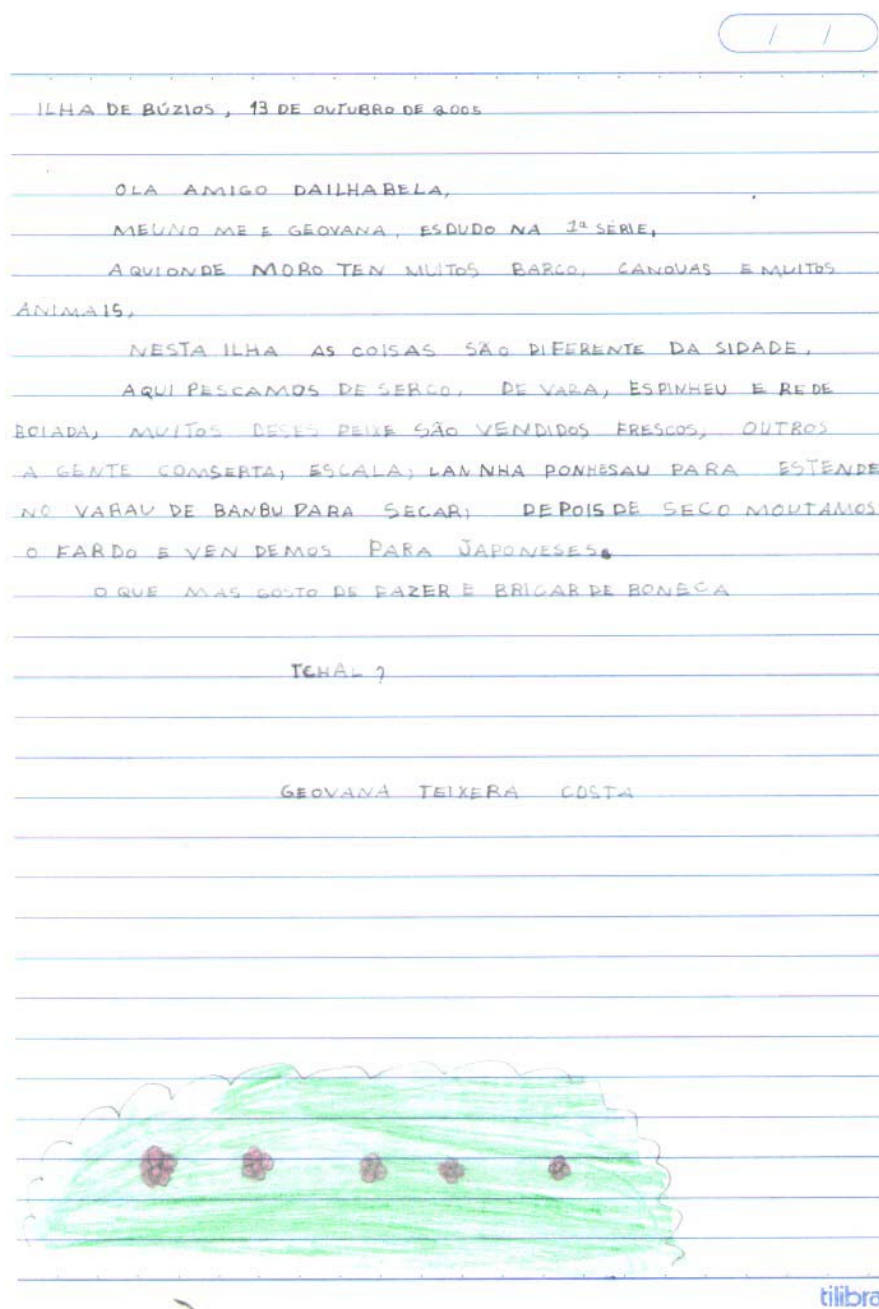 / /
ILHA DE BÚZIOS, 13 DE OUTUBRO DE 2005
OLA AMIGO DAILHABELA,
MEUNO ME E GEOVANA, ESDUDO NA 1ª SÉRIE,
AQUIONDE MORO TEN MUITOS BARCO, CANOUAS E MUITOS
ANIMAIS,
NESTA ILHA AS COISAS SÃO DIFERENTE DA SIDADE,
AQUI PESCAMOS DE SERCO, DE VARA, ESPINHEU E REDE
BOIADA, MUITOS DESES PEIXE SÃO VENDIDOS FRESCOS, OUTROS
A GENTE COMSERTA, ESCALA, LANNHA PONHESAU PARA ESTENDE
NO VARAU DE BANBU PARA SECAR, DEPOIS DE SECO MOUTAMOS
O FARDO E VEN DEMOS PARA JAPONESES.
O QUE MAS GOSTO DE FAZER E BRICAR DE BONECA
TCHAL?
GEOVANA TEIXERA COSTA
tilibra